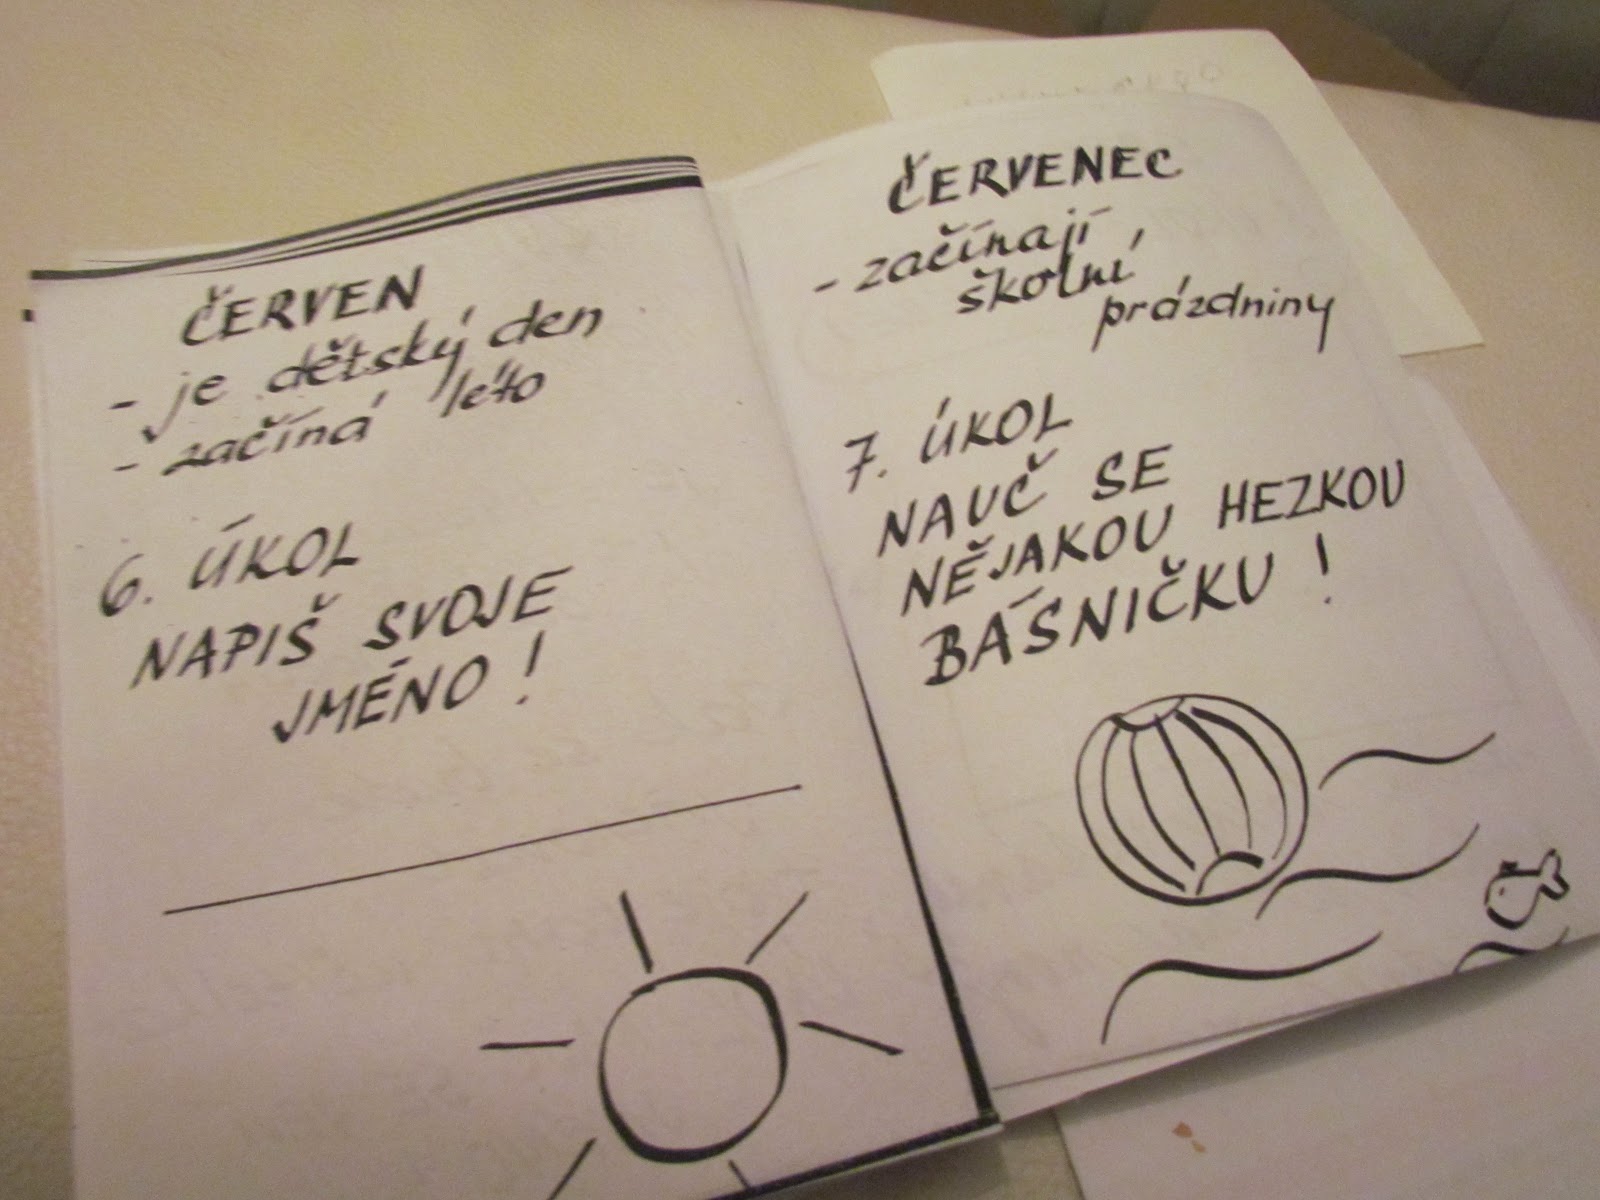 ČERVEN
- je dětský den
- začíná léto
6. ÚKOL
NAPIŠ SVOJE
JMÉNO!
ČERVENEC
- začínají
školní
prázdniny
7. ÚKOL
NAUČ SE
NĚJAKOU HEZKOU
BÁSNIČKU!